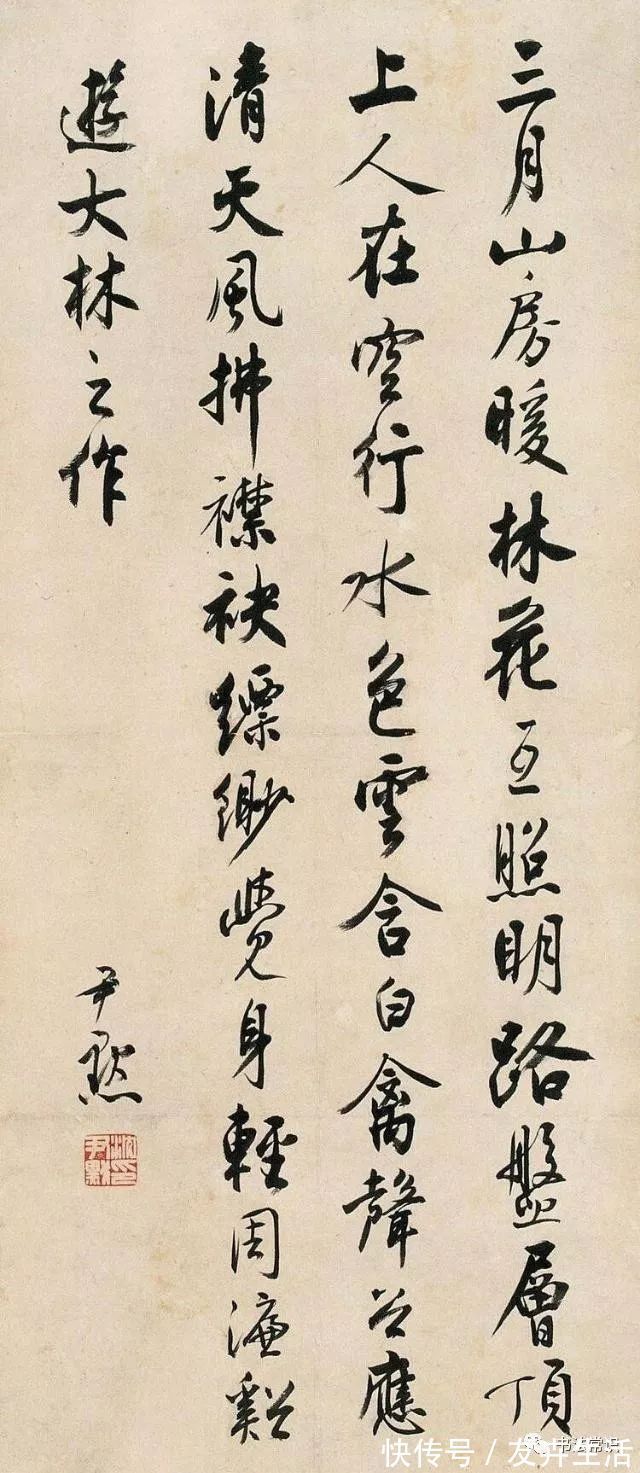 三月山房暖林花互照明路盤層頂
上人在空行水色雲含白禽聲谷應
清天風拂襟袂縹緲覺身輕周濂谿
遊大林之作
尹默
沈尹默印
书法常识
快传号 / 友卉生活